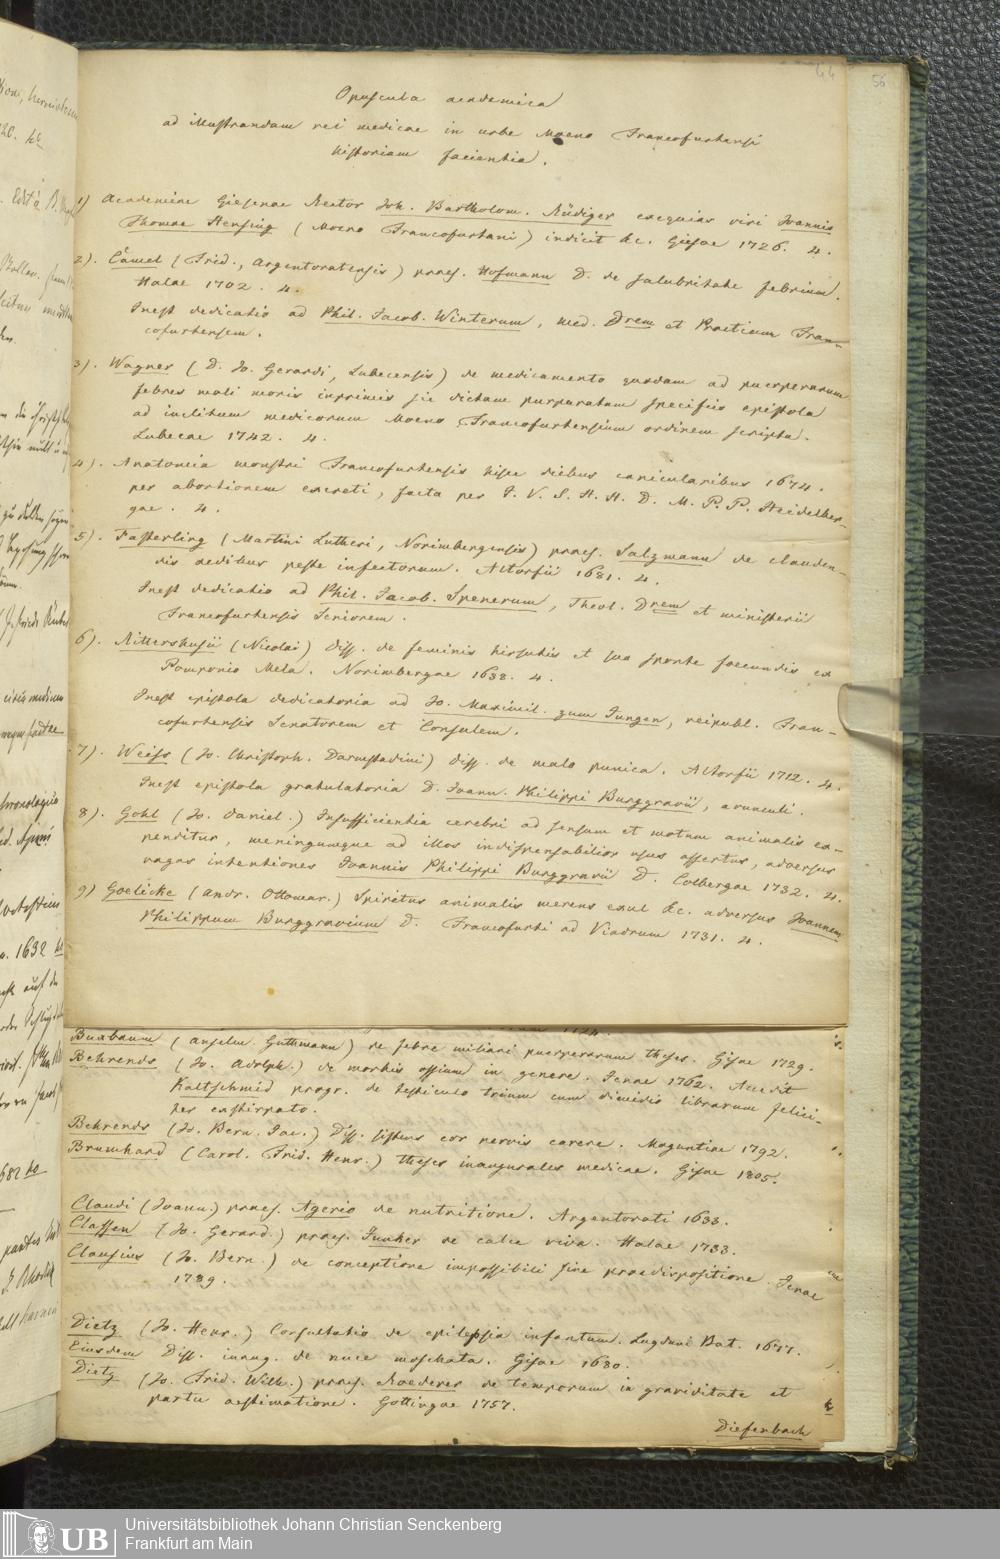 44
56
Opuscula academica
ad illustrandam rei medicae in urbe Moeno Francofurtensi
historiam facientia.
1) Academiae Giesenae Rector Joh. Bartholom. Rüdiger exequias viri Joannis
Thomae Hensing (Moeno Francofurtani) indicit &c. Gissae 1726. 4.
2). Camel (Frid., Argentoratensis) praes. Hofmann D. de salubritate febrium.
Halae 1702. 4.
Inest dedicatio ad Phil. Jacob. Winterum, Med. Drem et Practicum Fran-
cofurtensem.
3). Wagner (D. Jo. Gerardi, Lubecensis) de medicamento quodam ad puerperarum
febres mali moris inprimis sic dictam purpuratam specifico epistola
ad inclitum medicorum Moeno Francofurtensium ordinem scripta.
Lubecae 1742. 4.
4). Anatomia monstri Francofurtensis hisce diebus canicularibus 1674.
per abortionem excreti, facta per J. V. S. H. H. D. M. P. P. Heidelber-
gae. 4.
5). Fasterling (Martini Lutheri, Norimbergensis) praes. Salzmann de clauden-
dis aedibus peste infectorum. Altorfii 1681. 4.
Inest dedicatio ad Phil. Jacob. Spenerum, Theol. Drem et ministerii
Francofurtensis Seniorem.
6). Rittershusii (Nicolai) Diss. de feminis hirsutis et sua sponte foecundis ex
Pomponio Mela. Norimbergae 1638. 4.
Inest epistola dedicatoria ad Jo. Maximil. zum Jungen, reipubl. Fran-
cofurtensis Senatorem et Consulem.
7). Weiss (Jo. Christoph. Darmstadini) Diss. de malo punica. Altorfii 1712. 4.
Inest epistola gratulatoria D. Joann. Philippi Burggravii, avunculi.
8). Gohl (Jo. Daniel.) Insufficientia cerebri ad sensum et motum animalis ex-
penditur, meningumque ad illos indispensabilior usus assertus, adversus
vagas intentiones Joannis Philippi Burggravii D. Colbergae 1732. 4.
9) Goelicke (Andr. Ottomar.) Spiritus animalis merens exul &c. adversus Joannem
Philippum Burggravium D. Francofurti ad Viadrum 1731. 4.
Buxbaum (Anselm. Guthmann) de febre miliari puerperarum theses. Gissae 1729.
Behrends (Jo. Adolph.) de morbis ossium in genere. Jenae 1762. Accedit
Kaltschmid progr. de testiculo trium cum dimidio librarum felici-
ter exstirpato.
Behrends (Jo. Bern. Jac.) Diss. sistens cor nervis carere. Moguntiae 1792.
Brumhard (Carol. Frid. Henr.) theses inaugurales medicae. Gissae 1805.
Claudi (Joann.) praes. Agerio de nutritione. Argentorati 1633.
Classen (Jo. Gerard.) praes. Junker de calce viva. Halae 1733.
Clausius (Jo. Bern.) de conceptione impossibili sine praedispositione. Jenae
1789.
Dietz (Jo. Henr.) Consultatio de epilepsia infantum. Lugduni Bat. 1677.
Eiusdem Diss. inaug. de nuce moschata. Gissae 1680.
Dietz (Jo. Frid. Wilh.) praes. Roederer de temporum in graviditate et
partu aestimatione. Gottingae 1757.
Diefenbach
UB
Universitätsbibliothek Johann Christian Senckenberg
Frankfurt am Main